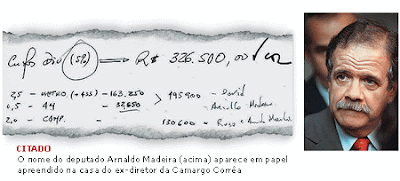 (5%) → R$ 326.500,00
2,5 - METRO (+455) - 163.250 > 195.900 - David
0,5 - AM - 32.650 Arnaldo Madeira
2,0 - CAMP. - 130.600 -
CITADO
O nome do deputado Arnaldo Madeira (acima) aparece em papel
apreendido na casa do ex-diretor da Camargo Corrêa